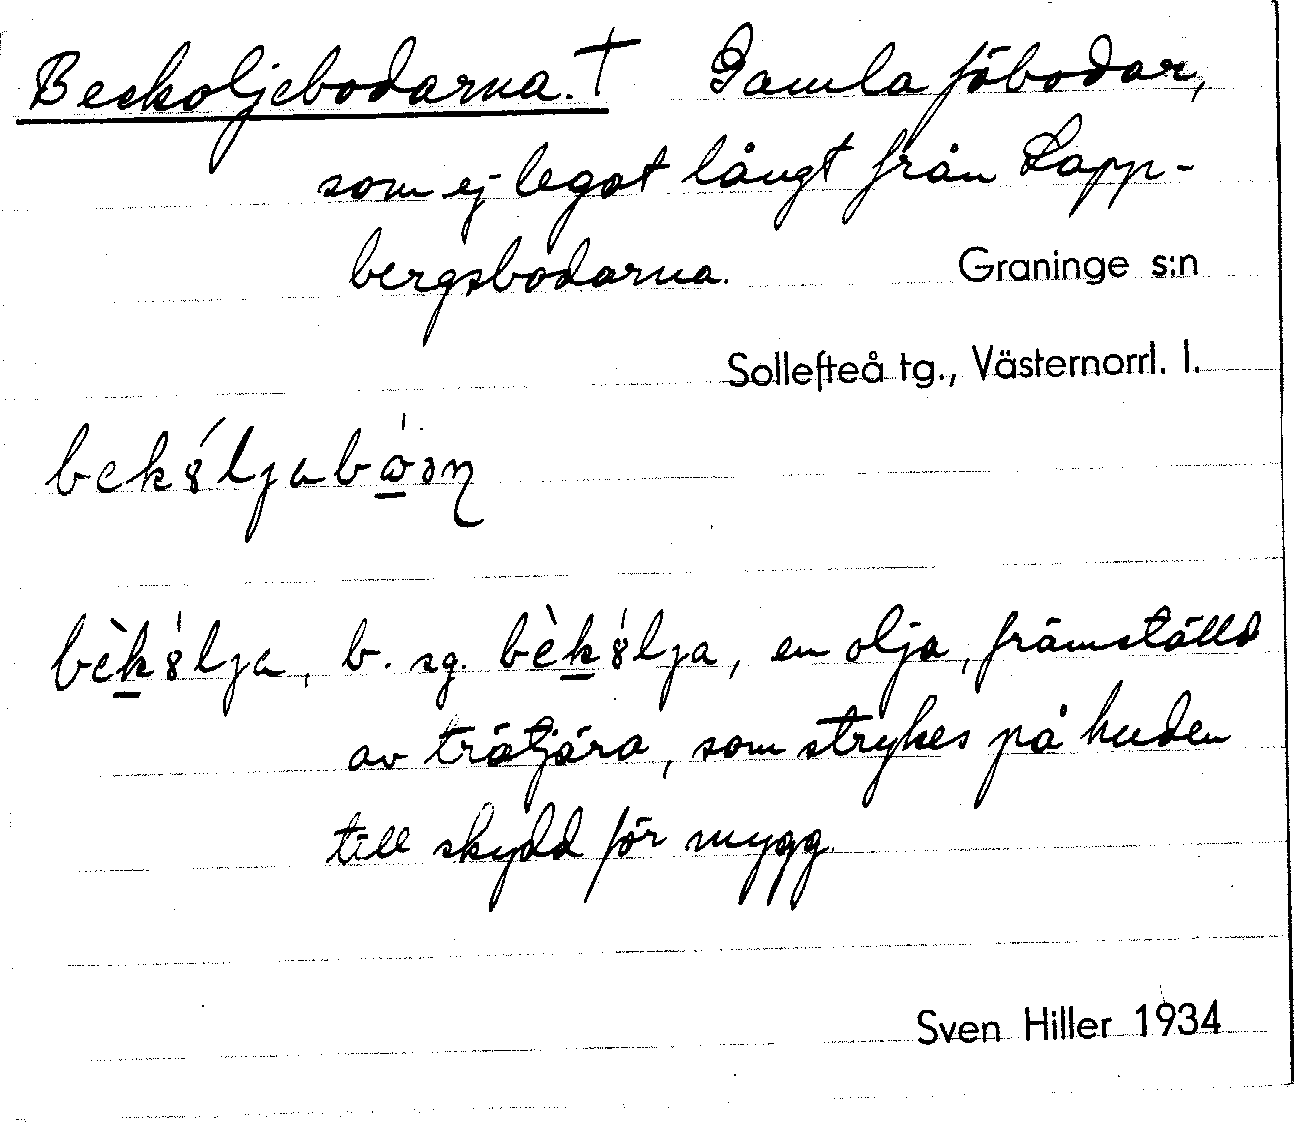 Beckoljebodarna. † Gamla fäbodar,
som ej legat långt från Lapp-
bergsbodarna. Graninge s:n
Sollefteå tg., Västernorrl. l.
bek8́ljabò̱ən̡
bèḵ8̍lja, b. sg. bèḵ8̍lja, en olja, framställd
av trätjära, som strykes på huden
till skydd för mygg.
Sven Hiller 1934